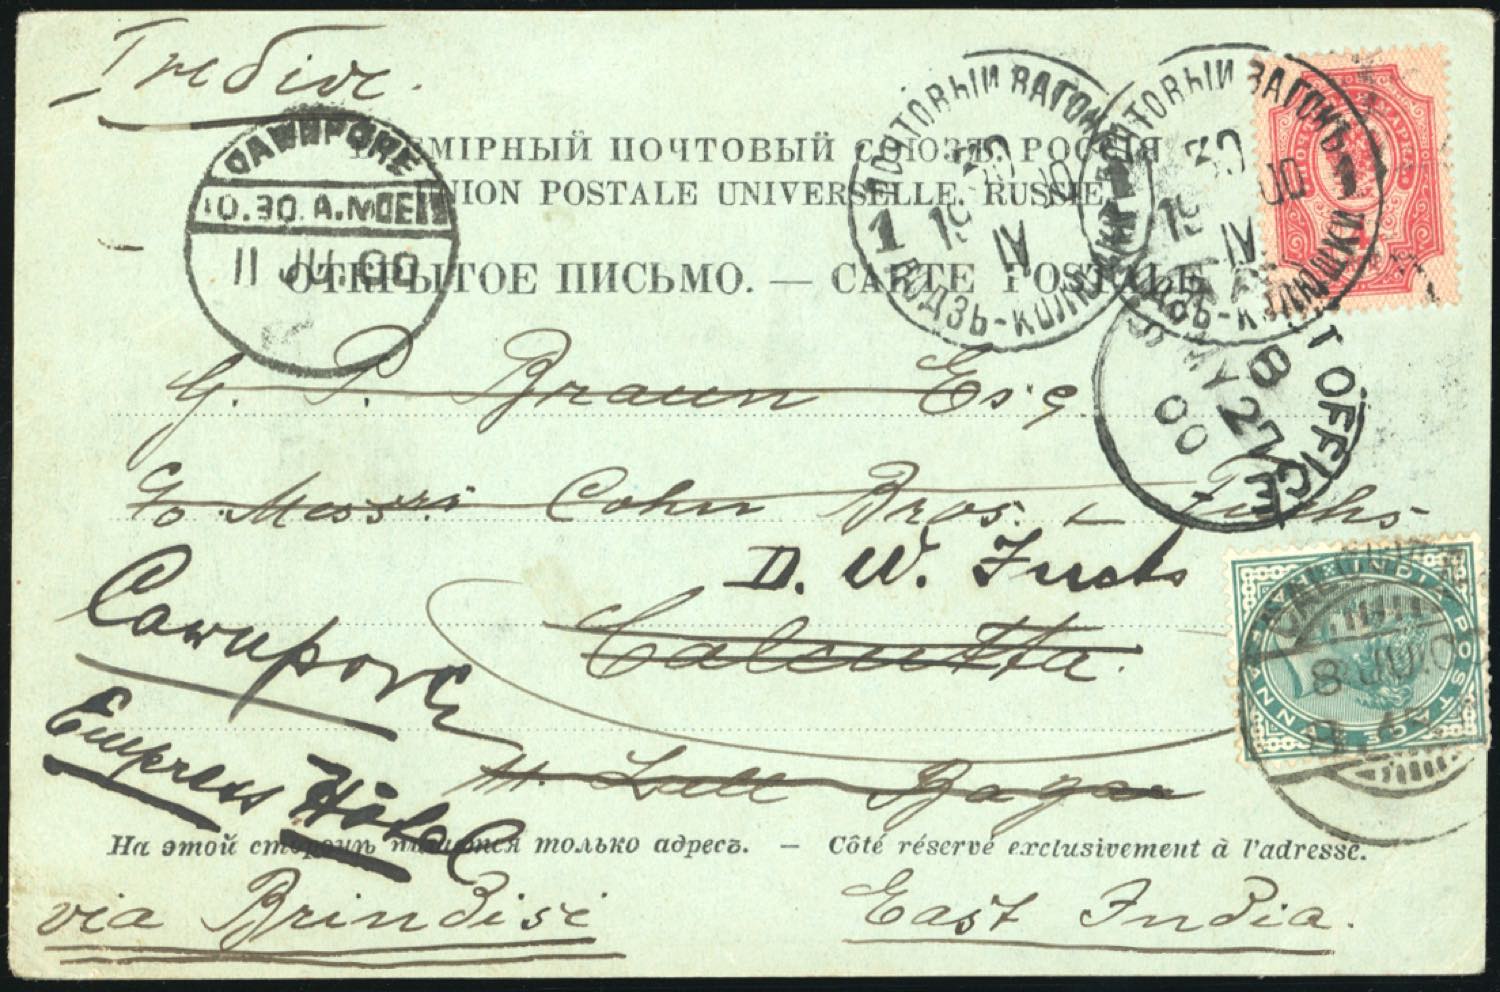 ВСЕМІРНЫЙ ПОЧТОВЫЙ СОЮЗЪ. РОССІЯ
UNION POSTALE UNIVERSELLE. RUSSIE
ОТКРЫТОЕ ПИСЬМО. — CARTE POSTALE
CAWNPORE
10.30.A.M DEL
11 JU.00
ПОЧТОВЫЙ ВАГОНЪ
1 30 1900 IV
ЛОДЗЬ-КОЛЮШКИ
ПОЧТОВЫЙ ВАГОНЪ
1 30 1900 IV
ЛОДЗЬ-КОЛЮШКИ
МАРКА
T OFFICE
MY 27
00
G. P. Braun Esq.
c/o Messrs Cohn Bros. & Fuchs
D. W. Fuchs
Calcutta.
Cawnpore
Empress Hôtel
INDIA POSTAGE
8 JU.00
На этой сторонѣ пишется только адресъ. — Côté réservé exclusivement à l'adresse.
via Brindisi
East India.